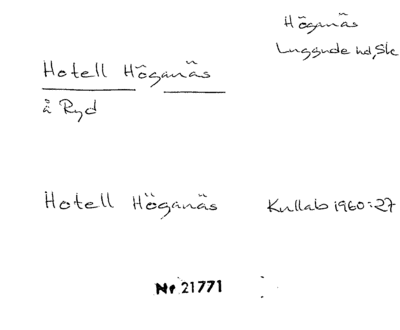 Höganäs
Luggude hd, Sk
Hotell Höganäs
å Ryd
Hotell Höganäs Kullab 1960:27
Nr 21771